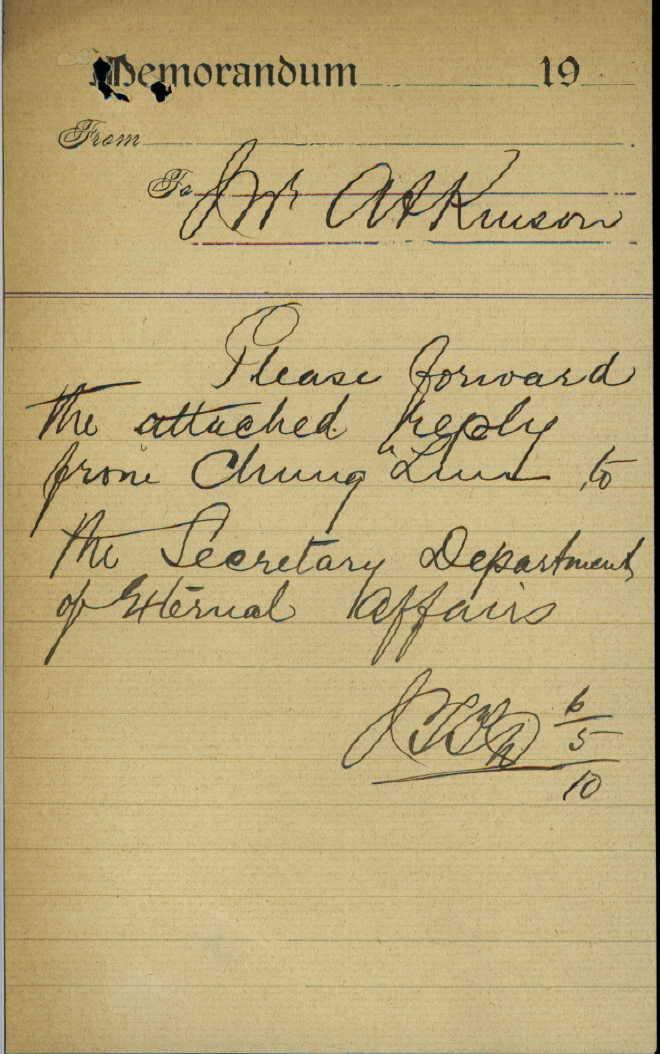 Memorandum 19
From
To Mr Atkinson
Please forward
the attached reply
from Chung "Lum to
the Secretary Department
of External Affairs
6
5
10